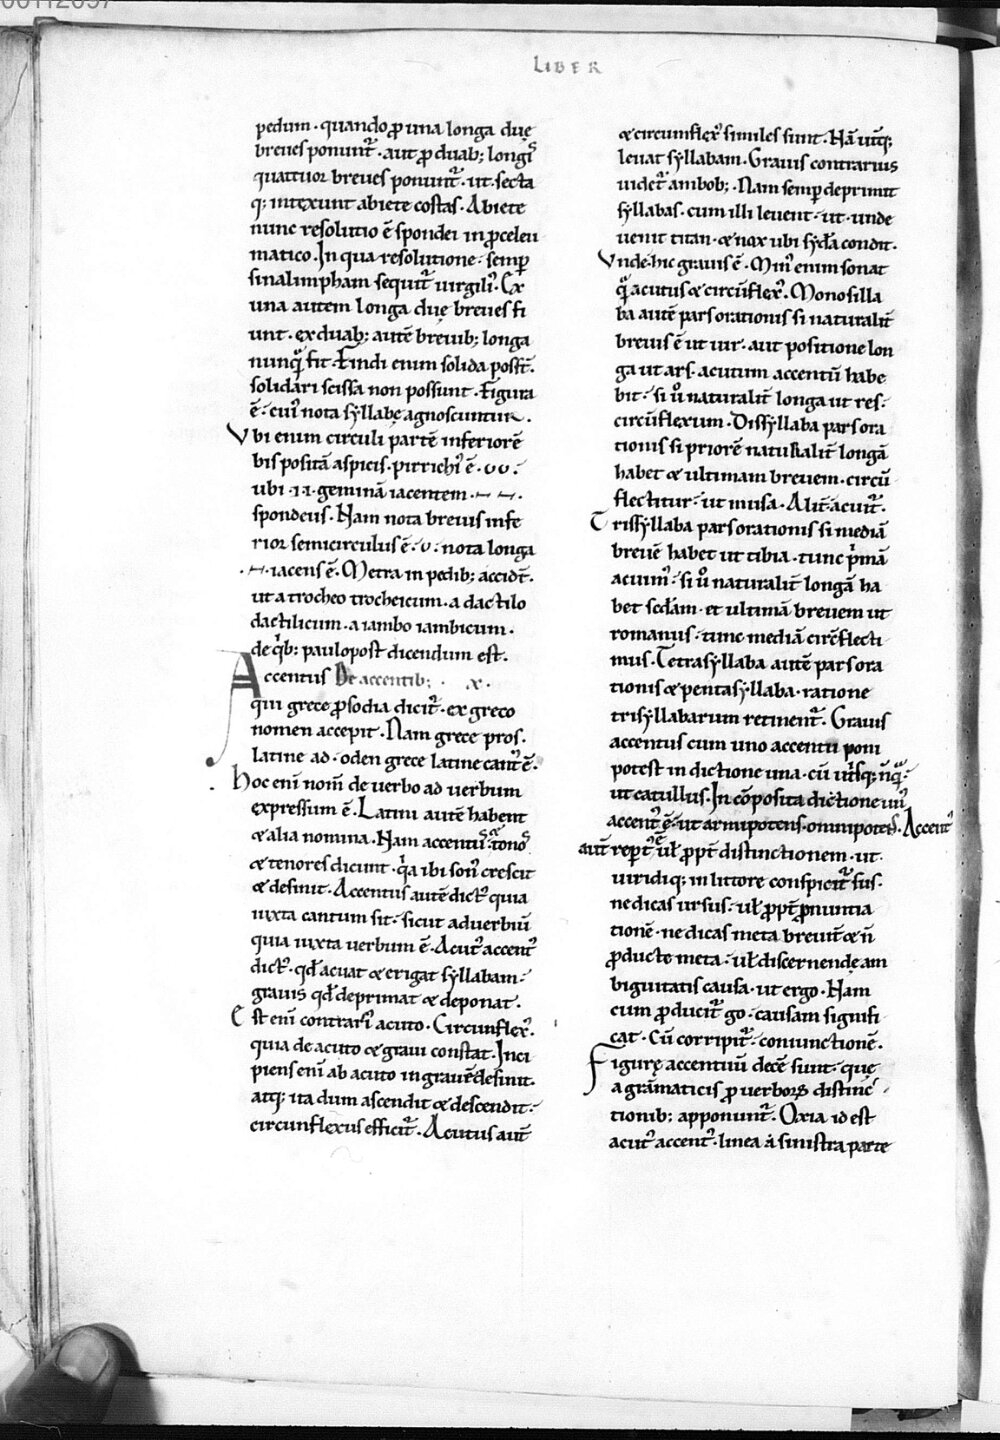 LIBER
pedum · quando ꝓ una longa duę
breues ponunt᷑ · aut ꝓ duab; longis
quattuor breues ponunt᷑ · ut · secta
q; intexunt abiete costas · Abiete
nunc resolutio ē spondei in ꝓceleu
matico · In qua resolutione · semꝑ
sinalimpham sequit᷑ uirgiliꝰ · Ex
una autem longa duę breues fi
unt · ex duab; autē breuib; longa
nunqͣ fit · Findi enim solida post᷑ ·
solidari scissa non possunt · Figura
ē · cuiꝰ nota syllabę agnoscuntur .
Vbi enim circuli partē inferiorē
bis positā aspicis · pirrichiꝰ ē · ᴗᴗ ·
ubi · ıı · geminā iacentem · – –.
spondeus · Nam nota breuis infe
rior semicirculus ē · ᴗ · nota longa
· – · iacens ē · Metra in pedib; accidt᷑ ·
ut a trocheo trocheicum · a dactilo
dactilicum · a iambo iambicum ·
de qͥb; paulopost dicendum est .
Accentus De accentib; · x ·
qui grece ꝓsodia dicit᷑ · ex greco
nomen accepit · Nam grece pros ·
latine ad · oden grece latine cantꝰ ē ·
hoc eni nom̄ de uerbo ad uerbum
expressum ē · Latini autē habent
& alia nomina · Nam accentuˢ & tonoˢ
& tenores dicunt · qͥa ibi sonꝰ crescit
& desinit · Accentus autē dictꝰ quia
iuxta cantum sit · sicut aduerbiū
quia iuxta uerbum ē · Acutꝰ accentꝰ
dictꝰ · qđ acuat & erigat syllabam ·
grauis qđ deprimat & deponat ·
Est eni contrariꝰ acuto · Circunflexꝰ ·
quia de acuto & graui constat · Inci
piens eni ab acuto in grauē desinit ·
atq; ita dum ascendit & descendit ·
circunflexus efficit᷑ · Acutus aut̄
& circumflexꝰ similes sunt · Nā utq;
leuat syllabam · Grauis contrarius
uidet᷑ ambob; · Nam semꝑ deprimit
syllabas · cum illi leuent · ut · unde
uenit titan · & nox ubi syđa condit ·
Vnde hic grauis ē · Minꝰ enim sonat
qͣ acutus & circūflexꝰ · Monosilla
ba autē pars orationis si naturalit᷑
breuis ē ut uir · aut positione lon
ga ut ars · acutum accentū habe
bit · si u̇ naturalit᷑ longa ut res ·
circūflexum · Dissyllaba pars ora
tionis si priorē naturalit᷑ longā
habet & ultimam breuem · circū
flectitur · ut musa · Alit᷑ acuit᷑ ·
Trissyllaba pars orationis si mediā
breuē habet ut tibia · tunc pͥmā
acuimꝰ · si u̇ naturalit᷑ longā ha
bet scđam · et ultimā breuem ut
romanus · tunc mediā circ̄flecti
mus · Tetrasyllaba autē pars ora
tionis & pentasyllaba · ratione
trisyllabarum retinent᷑ · Grauis
accentus cum uno accentu poni
potest in dictione una · cū utrisq; nqͣ ·
ut catullus · In cōposita dictione unꝰ
accentꝰ ē · ut armipotens · omnipotens · Accentꝰ
aut̄ repertꝰ ē ul ꝓpt᷑ distinctionem · ut
uiridiq; in littore conspicit᷑ sus ·
ne dicas ursus · ul ꝓpt᷑ ꝓnuntia
tionē · ne dicas meta breuit᷑ & n̄
ꝓducte meta · ul discernendę am
biguitatis causa · ut ergo · Nam
cum ꝓducit᷑ go · causam signifi
cat · Cū corripit᷑ · coniunctionē ·
Figurę accentuū decē sunt · quę
a grāmaticis ꝓ uerboꝝ distinc
tionib; apponunt᷑ · Oxia id est
acutꝰ accentꝰ · linea a sinistra parte